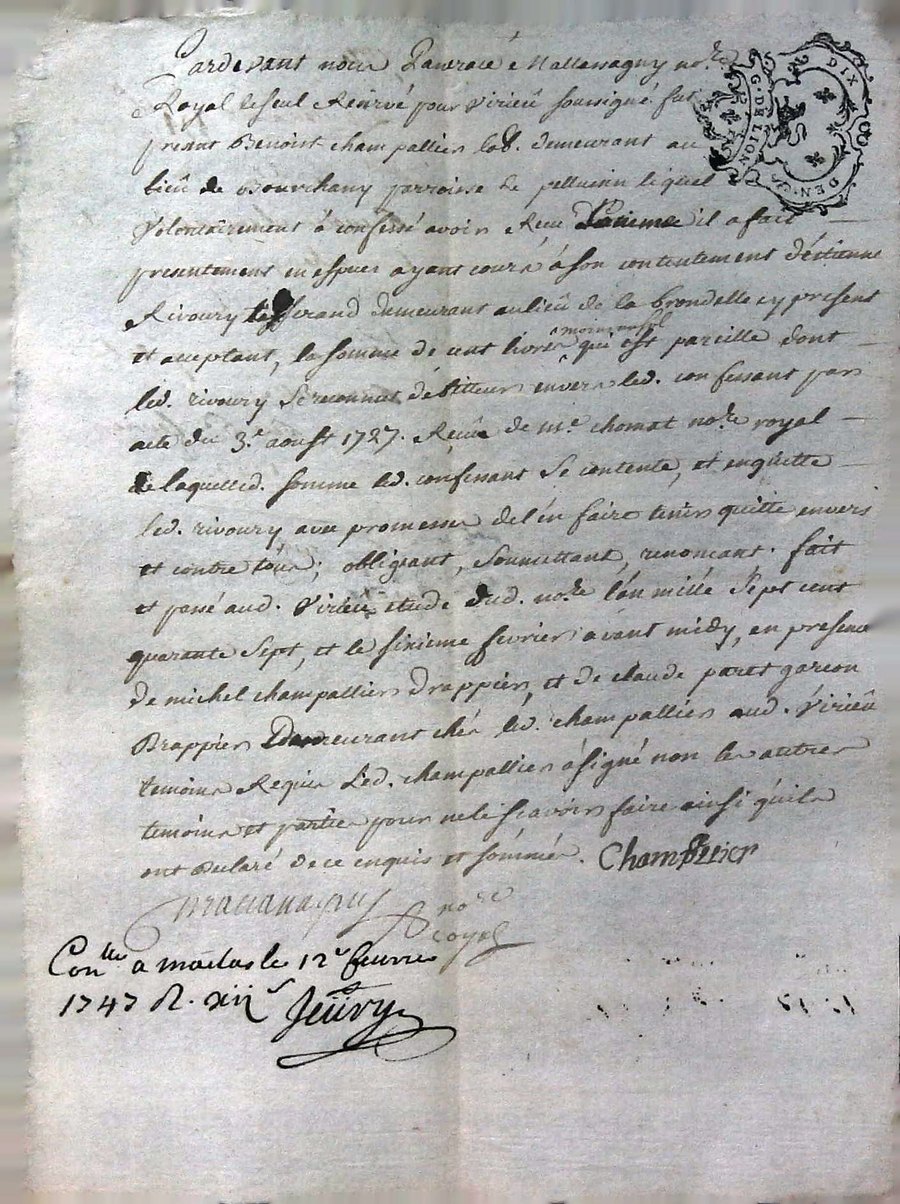 Pardevant nous Mallassagny no.re
Royal le seul Réservé pour Virieû soussigné fut
présent Benoist champallier lab. demeurant au
lieû de parroisse de pellussin lequel
Volontairement à confessé avoir Receu il a fait
presentement en especes ayant cours à son contentement d'éstienne
Rivoury tisserand demeurant au lieû de la brondelle cy present
et aceptant, la somme de cent livres monnoye que est pareille dont
led. rivoury se reconnut débitteur envers led. confessant par
acte du 3.e aoust 1727. Reçüe de m.e chomat no.re royal
de laquelled. somme led. confessant se contente, et enquitte
led. rivoury avec promesse de l'en faire tenir quitte envers
et contre tous; obligeant, soumettant, renoncant. fait
et passé aud. Virieu etude dud. no.re l'an mille sept cent
quarante sept, et le sixieme fevrier avant midy, en presence
de michel champallier drappier, et de claude paret garcon
Drappier Demeurant chés led. champallier aud. Virieû
temoins Requis Led. champallier à signé non les autres
temoins et parties pour ne le sçavoir faire ainsi qu'ils
ont déclaré de ce enquis et sommés. Champallier
Mallassagny no.re
royal
Con.lle a maclas le 12e feuvrier
1747 R. xii s
G. DE LION
DIX DEN.